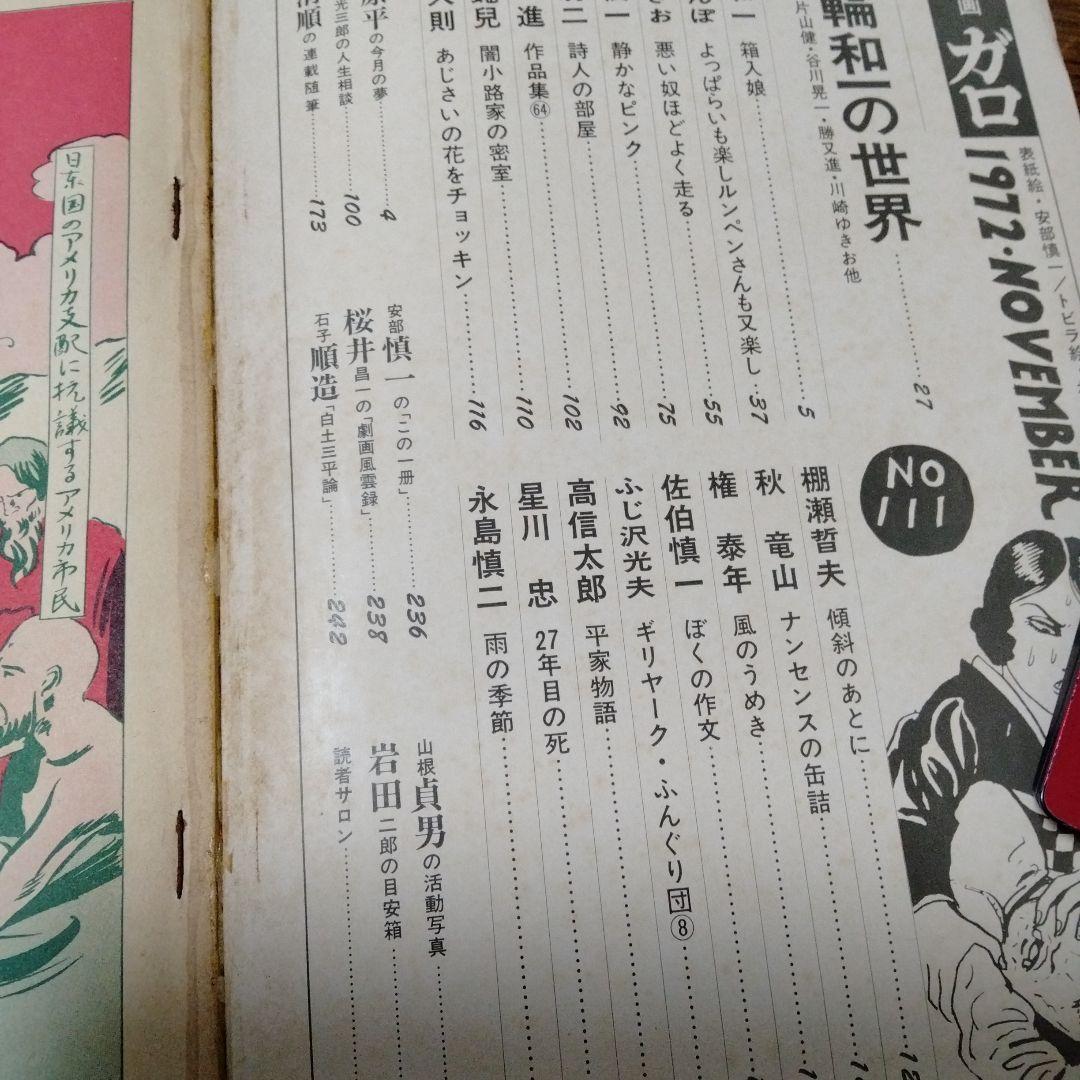 画ガロ1972・NOVEMBER
表紙絵・安部慎一／トビラ絵
NO 111
輪和一の世界……27
片山健・谷川晃一・勝又進・川崎ゆきお他
一 箱入娘……5
んぽ よっぱらいも楽しルンペンさんも又楽し……37
きお 悪い奴ほどよく走る……55
一 静かなピンク……75
二 詩人の部屋……92
進 作品集64……102
兒 闇小路家の密室……110
則 あじさいの花をチョッキン……116
棚瀬哲夫 傾斜のあとに
秋竜山 ナンセンスの缶詰
権泰年 風のうめき
佐伯慎一 ぼくの作文
ふじ沢光夫 ギリヤーク・ふんぐり団⑧
高信太郎 平家物語
星川忠 27年目の死
永島慎二 雨の季節
原平の今月の夢……4
光三郎の人生相談……100
順の連載随筆……173
安部慎一の「この一冊」……236
桜井昌一の「劇画風雲録」……238
石子順造「白土三平論」……242
山根貞男の活動写真
岩田二郎の目安箱
読者サロン
日東国のアメリカ支配に抗議するアメリカ市民